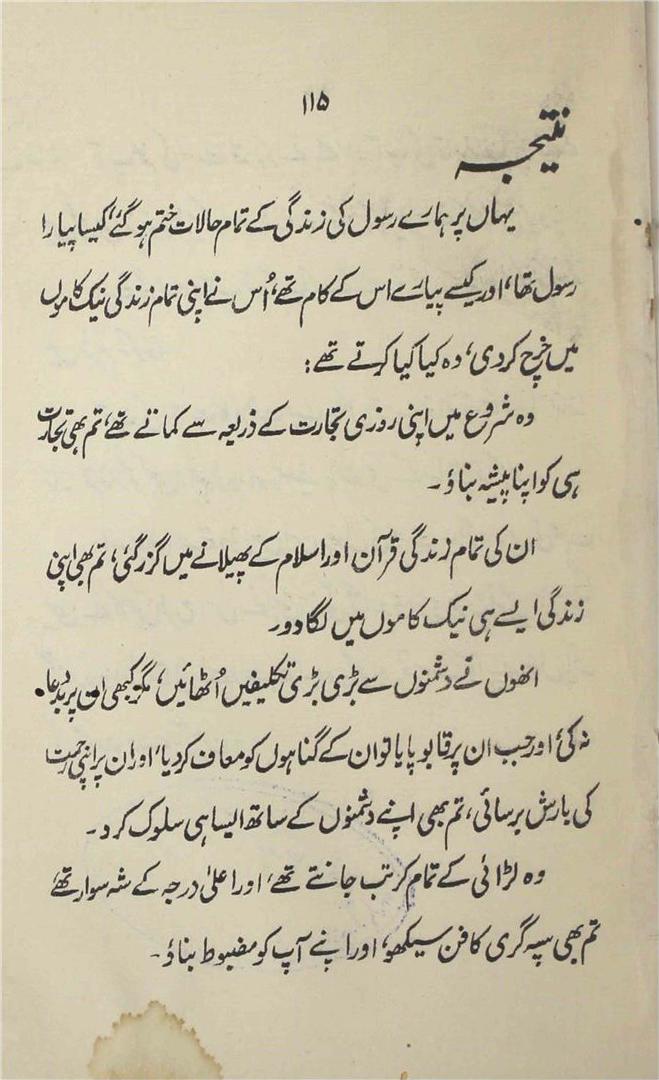 ۱۱۵
نتیجہ
یہاں پر ہمارے رسول کی زندگی کے تمام حالات ختم ہو گئے، کیسا پیارا
رسول تھا، اور کیسے پیارے اس کے کام تھے، اُس نے اپنی تمام زندگی نیک کاموں
میں خرچ کر دی، وہ کیا کیا کرتے تھے:
وہ شروع میں اپنی روزی تجارت کے ذریعہ سے کماتے تھے، تم بھی تجارت
ہی کو اپنا پیشہ بناؤ۔
ان کی تمام زندگی قرآن اور اسلام کے پھیلانے میں گزر گئی، تم بھی اپنی
زندگی ایسے ہی نیک کاموں میں لگا دو۔
انھوں نے دشمنوں سے بڑی بڑی تکلیفیں اُٹھائیں، مگر کبھی ان پر بد دعا
نہ کی، اور جب ان پر قابو پایا تو ان کے گناہوں کو معاف کر دیا، اور ان پر اپنی رحمت
کی بارش برسائی، تم بھی اپنے دشمنوں کے ساتھ ایسا ہی سلوک کرو۔
وہ لڑائی کے تمام کرتب جانتے تھے، اور اعلیٰ درجہ کے شہ سوار تھے،
تم بھی سپہ گری کا فن سیکھو، اور اپنے آپ کو مضبوط بناؤ۔